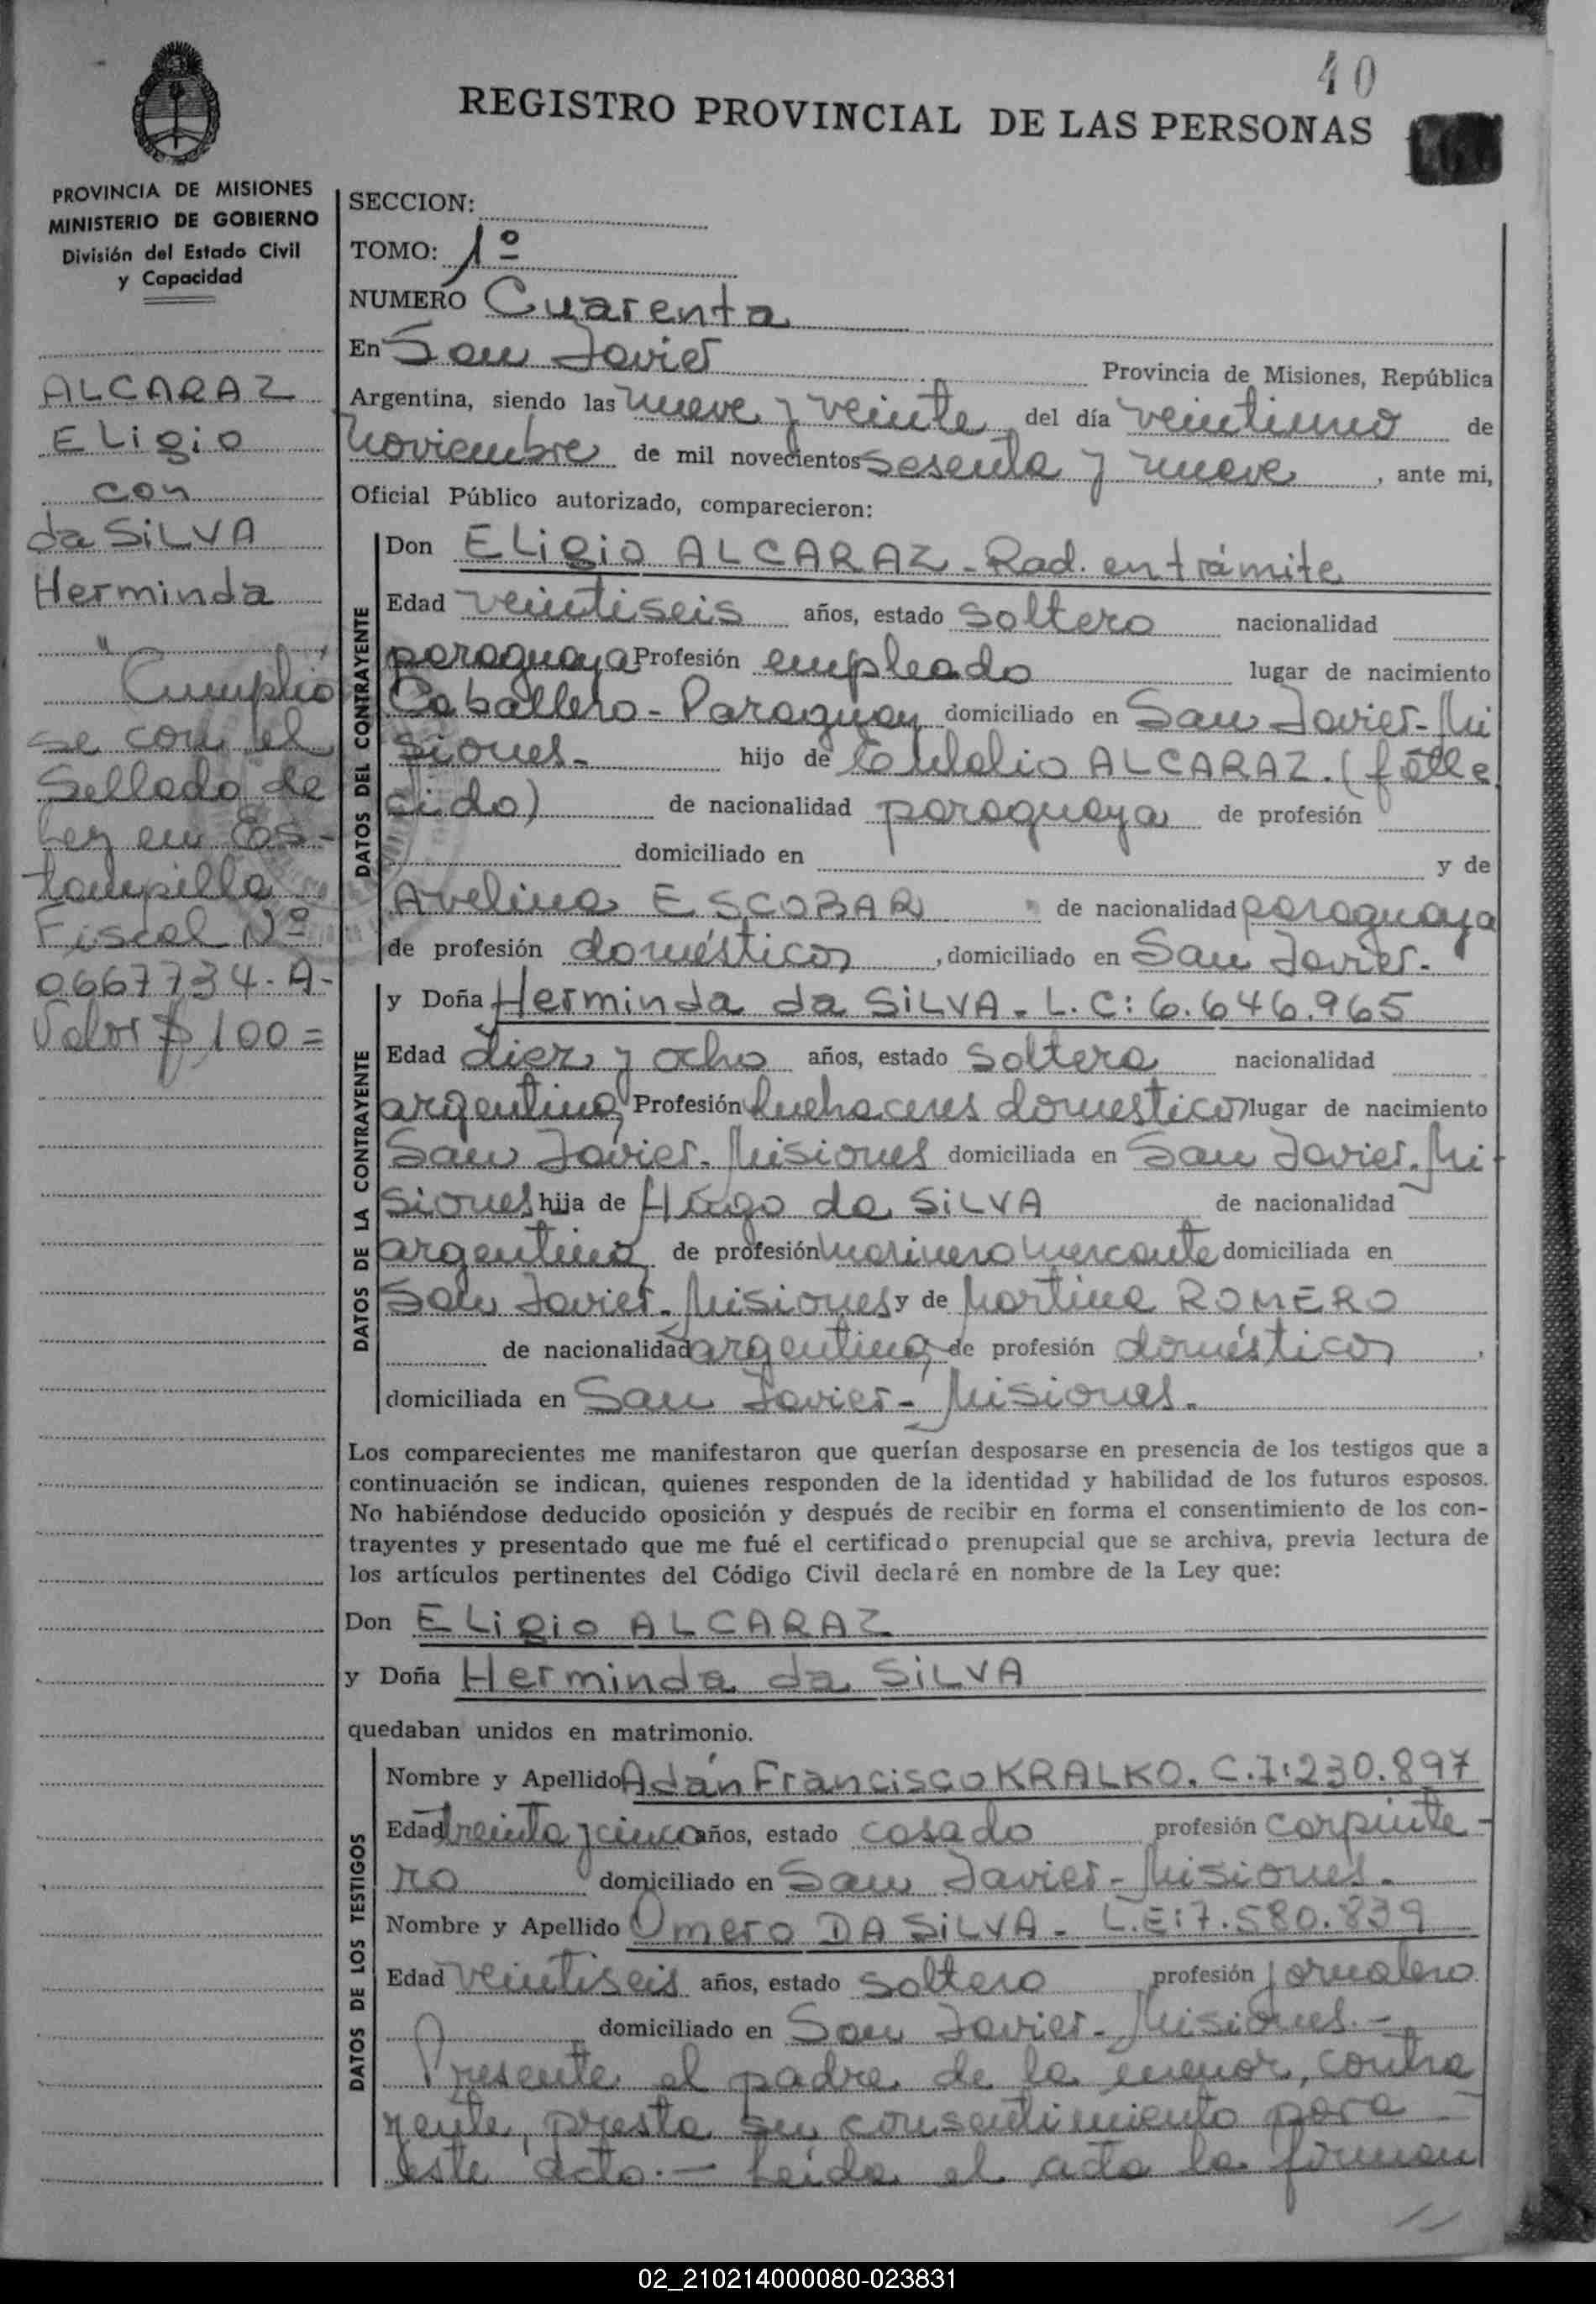 40
REGISTRO PROVINCIAL DE LAS PERSONAS
PROVINCIA DE MISIONES
MINISTERIO DE GOBIERNO
División del Estado Civil
y Capacidad
ALCARAZ
ELigio
con
da SiLVA
Herminda
" Cumplió
se con el
Sellado de
Ley en Es-
tampilla
Fiscal Nº
0667734-A-
Valor $ 100=
SECCION:
TOMO: 1º
NUMERO Cuarenta
En San Javier Provincia de Misiones, República
Argentina, siendo las nueve y veinte del día veintiuno de
noviembre de mil novecientos sesenta y nueve, ante mi,
Oficial Público autorizado, comparecieron:
DATOS DEL CONTRAYENTE
Don ELigio ALCARAZ - Rad. en trámite
Edad veintiseis años, estado soltero nacionalidad
paraguaya Profesión empleado lugar de nacimiento
Caballero - Paraguay domiciliado en San Javier - Mi
siones - hijo de Eulalio ALCARAZ. (falle
cido) de nacionalidad paraguaya de profesión
domiciliado en y de
Avelina ESCOBAR de nacionalidad paraguaya
de profesión domésticos, domiciliado en San Javier.
DATOS DE LA CONTRAYENTE
y Doña Herminda da SiLVA. L.C: 6.646.965
Edad diez y ocho años, estado soltera nacionalidad
argentina Profesión quehaceres domesticos lugar de nacimiento
San Javier. Misiones domiciliada en San Javier. Mi-
siones hija de Hugo da SiLVA de nacionalidad
argentina de profesión marinero mercante domiciliada en
San Javier. Misiones y de Martina ROMERO
de nacionalidad argentina, de profesión domésticos,
domiciliada en San Javier - Misiones.
Los comparecientes me manifestaron que querían desposarse en presencia de los testigos que a
continuación se indican, quienes responden de la identidad y habilidad de los futuros esposos.
No habiéndose deducido oposición y después de recibir en forma el consentimiento de los con-
trayentes y presentado que me fué el certificado prenupcial que se archiva, previa lectura de
los artículos pertinentes del Código Civil declaré en nombre de la Ley que:
Don ELigio ALCARAZ
y Doña Herminda da SiLVA
quedaban unidos en matrimonio.
DATOS DE LOS TESTIGOS
Nombre y Apellido Adán Francisco KRALKO. C.I:230.897
Edad treinta y cinco años, estado casado profesión carpinte-
ro domiciliado en San Javier - Misiones.
Nombre y Apellido Omero DA SiLVA - L.E:7.580.839
Edad veintiseis años, estado soltero profesión jornalero
domiciliado en San Javier - Misiones. -
Presente el padre de la menor, contra
yente, presta su consentimiento para
este acto. — Leida el acta la firman
02_210214000080-023831